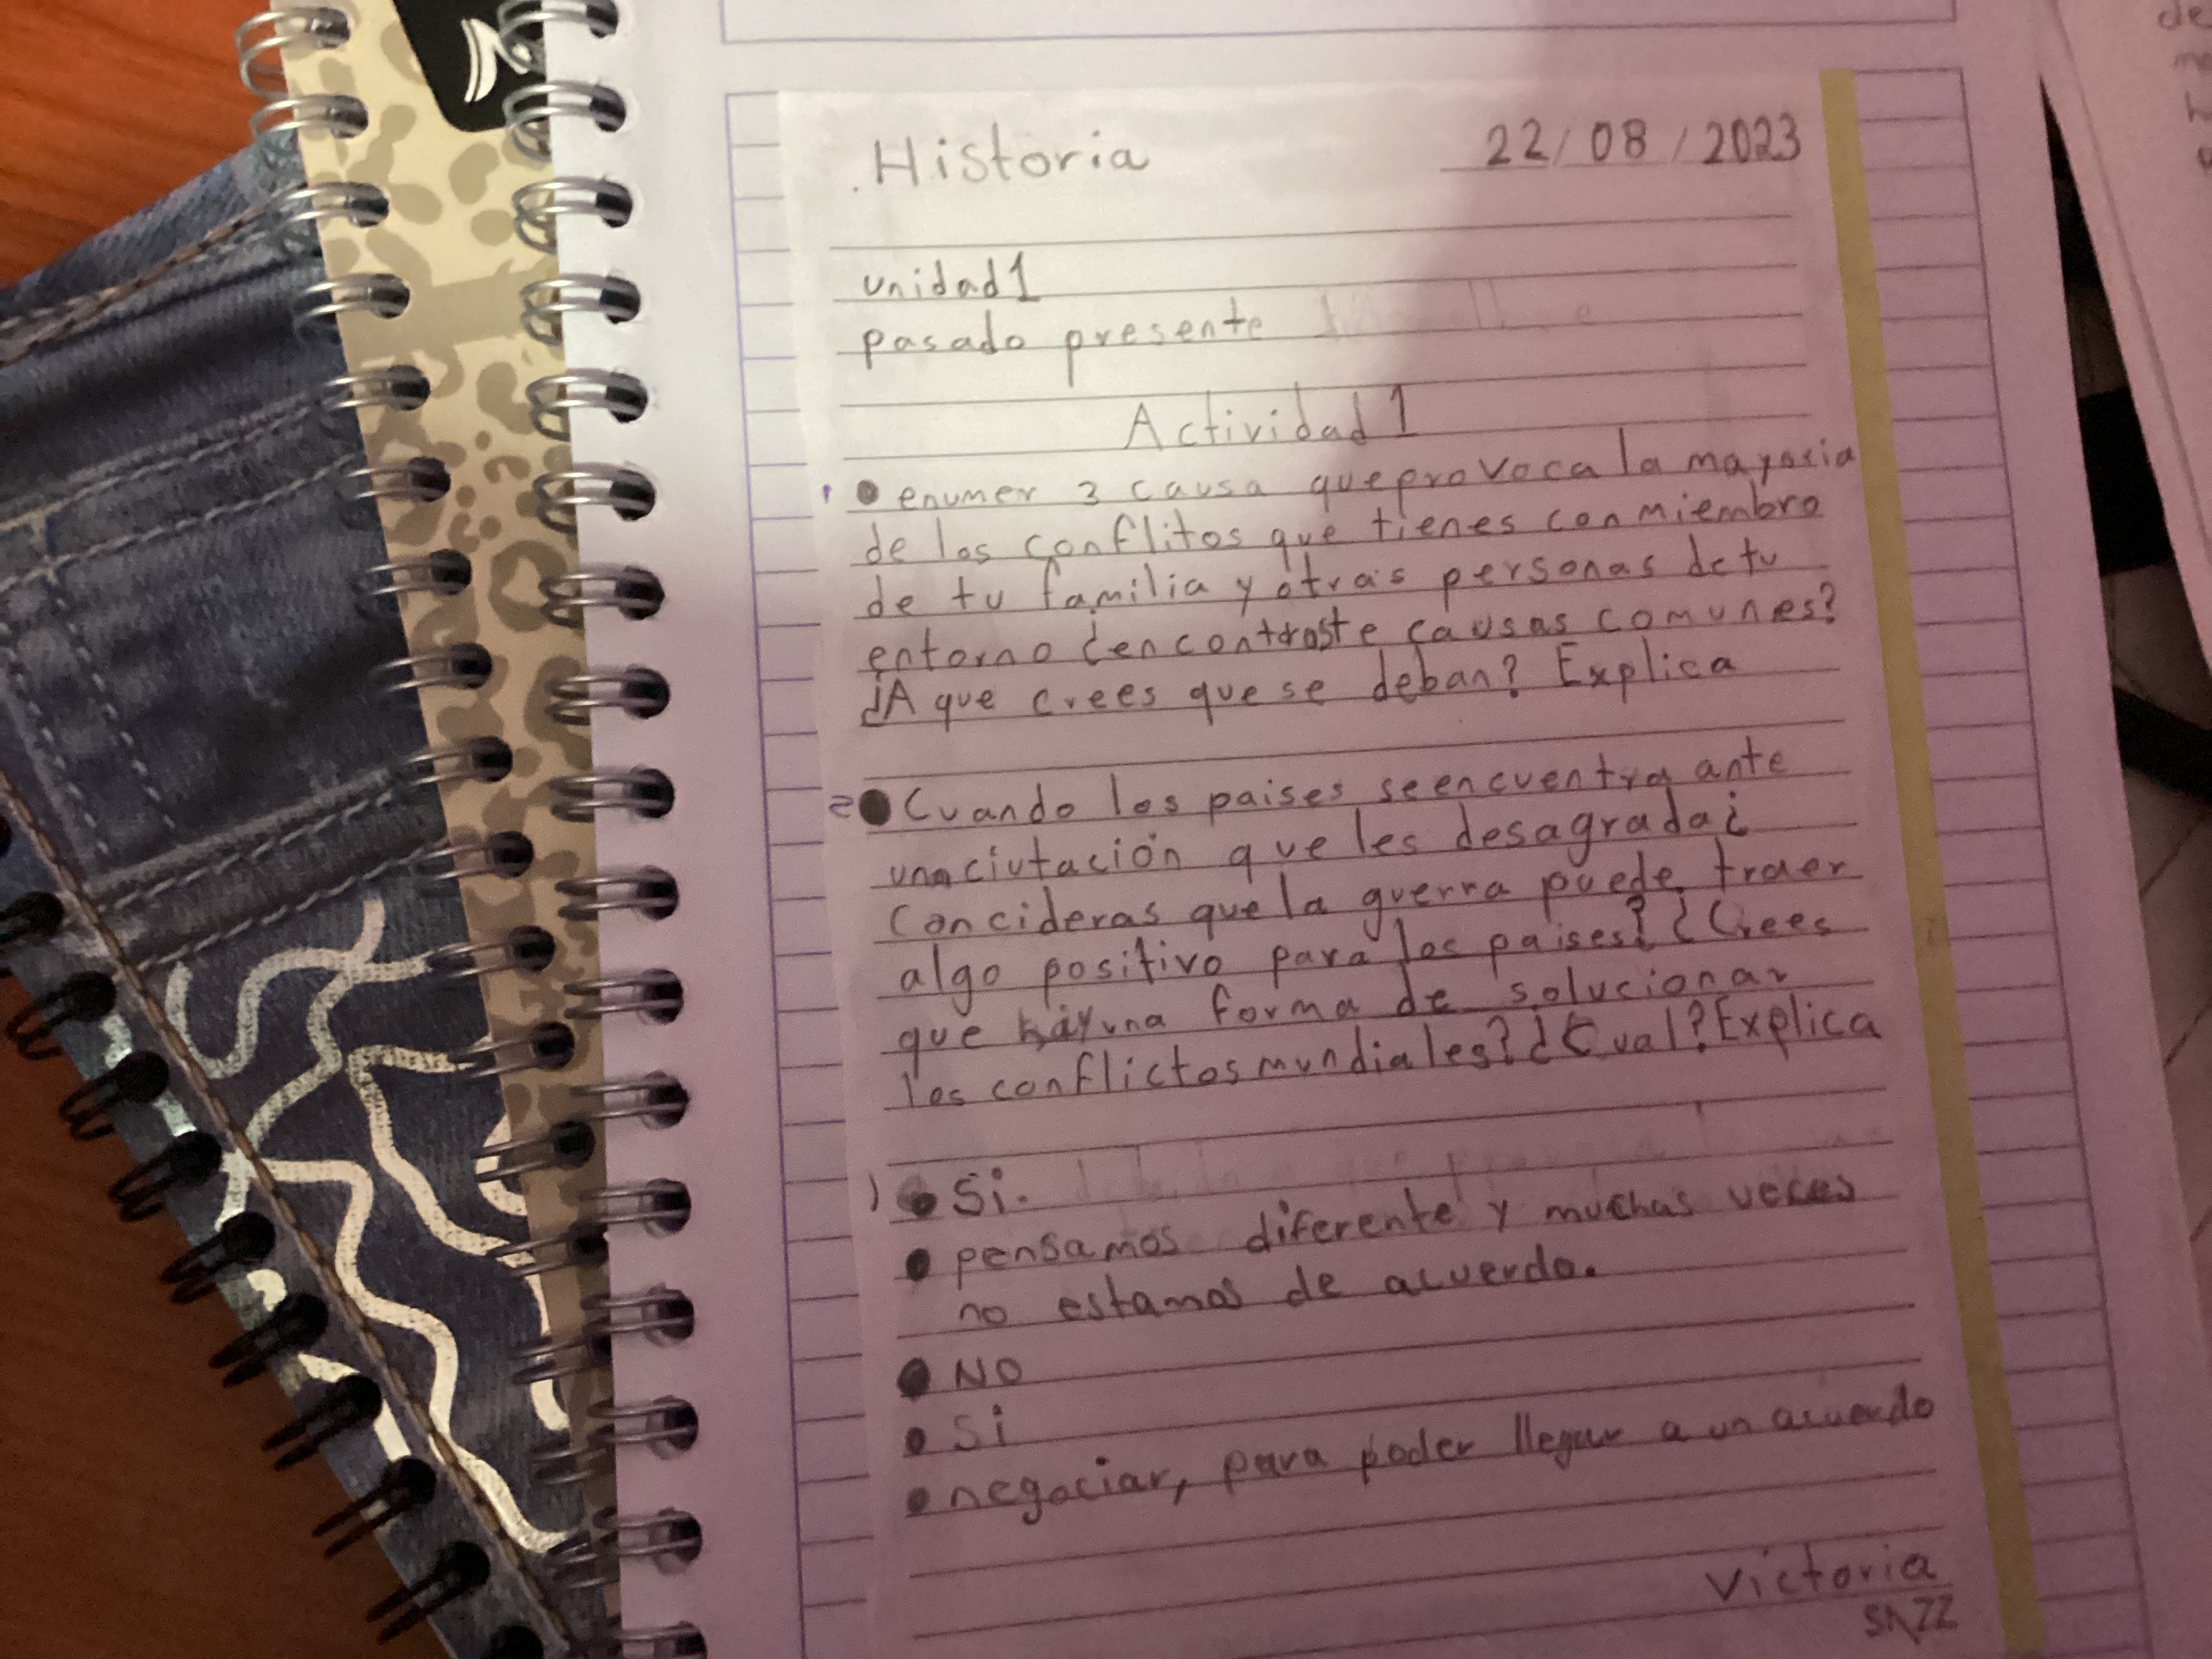 .Historia 22/08/2023
unidad 1
pasado presente
Actividad 1
1 • enumer 3 causa que provoca la mayoria
de los conflitos que tienes con miembro
de tu familia y otras personas de tu
entorno ¿encontraste causas comunes?
¿A que crees que se deban? Explica
2 • Cuando los paises se encuentra ante
una ciutación que les desagrada ¿
Concideras que la guerra puede traer
algo positivo para los paises? ¿Crees
que hay una forma de solucionar
los conflictos mundiales? ¿Cual? Explica
1 • Si.
• pensamos diferente y muchas veces
no estamos de acuerdo.
• NO
• Si
• negociar, para poder llegar a un acuerdo
Victoria